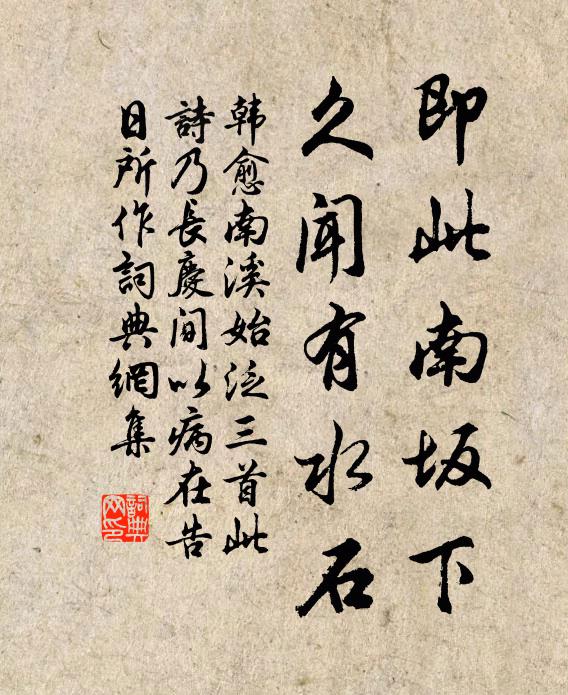 即此南坂下
久闻有水石
韩愈南溪始泛三首此
詩乃長慶间以病在告
日所作詞典網集
詞典網印